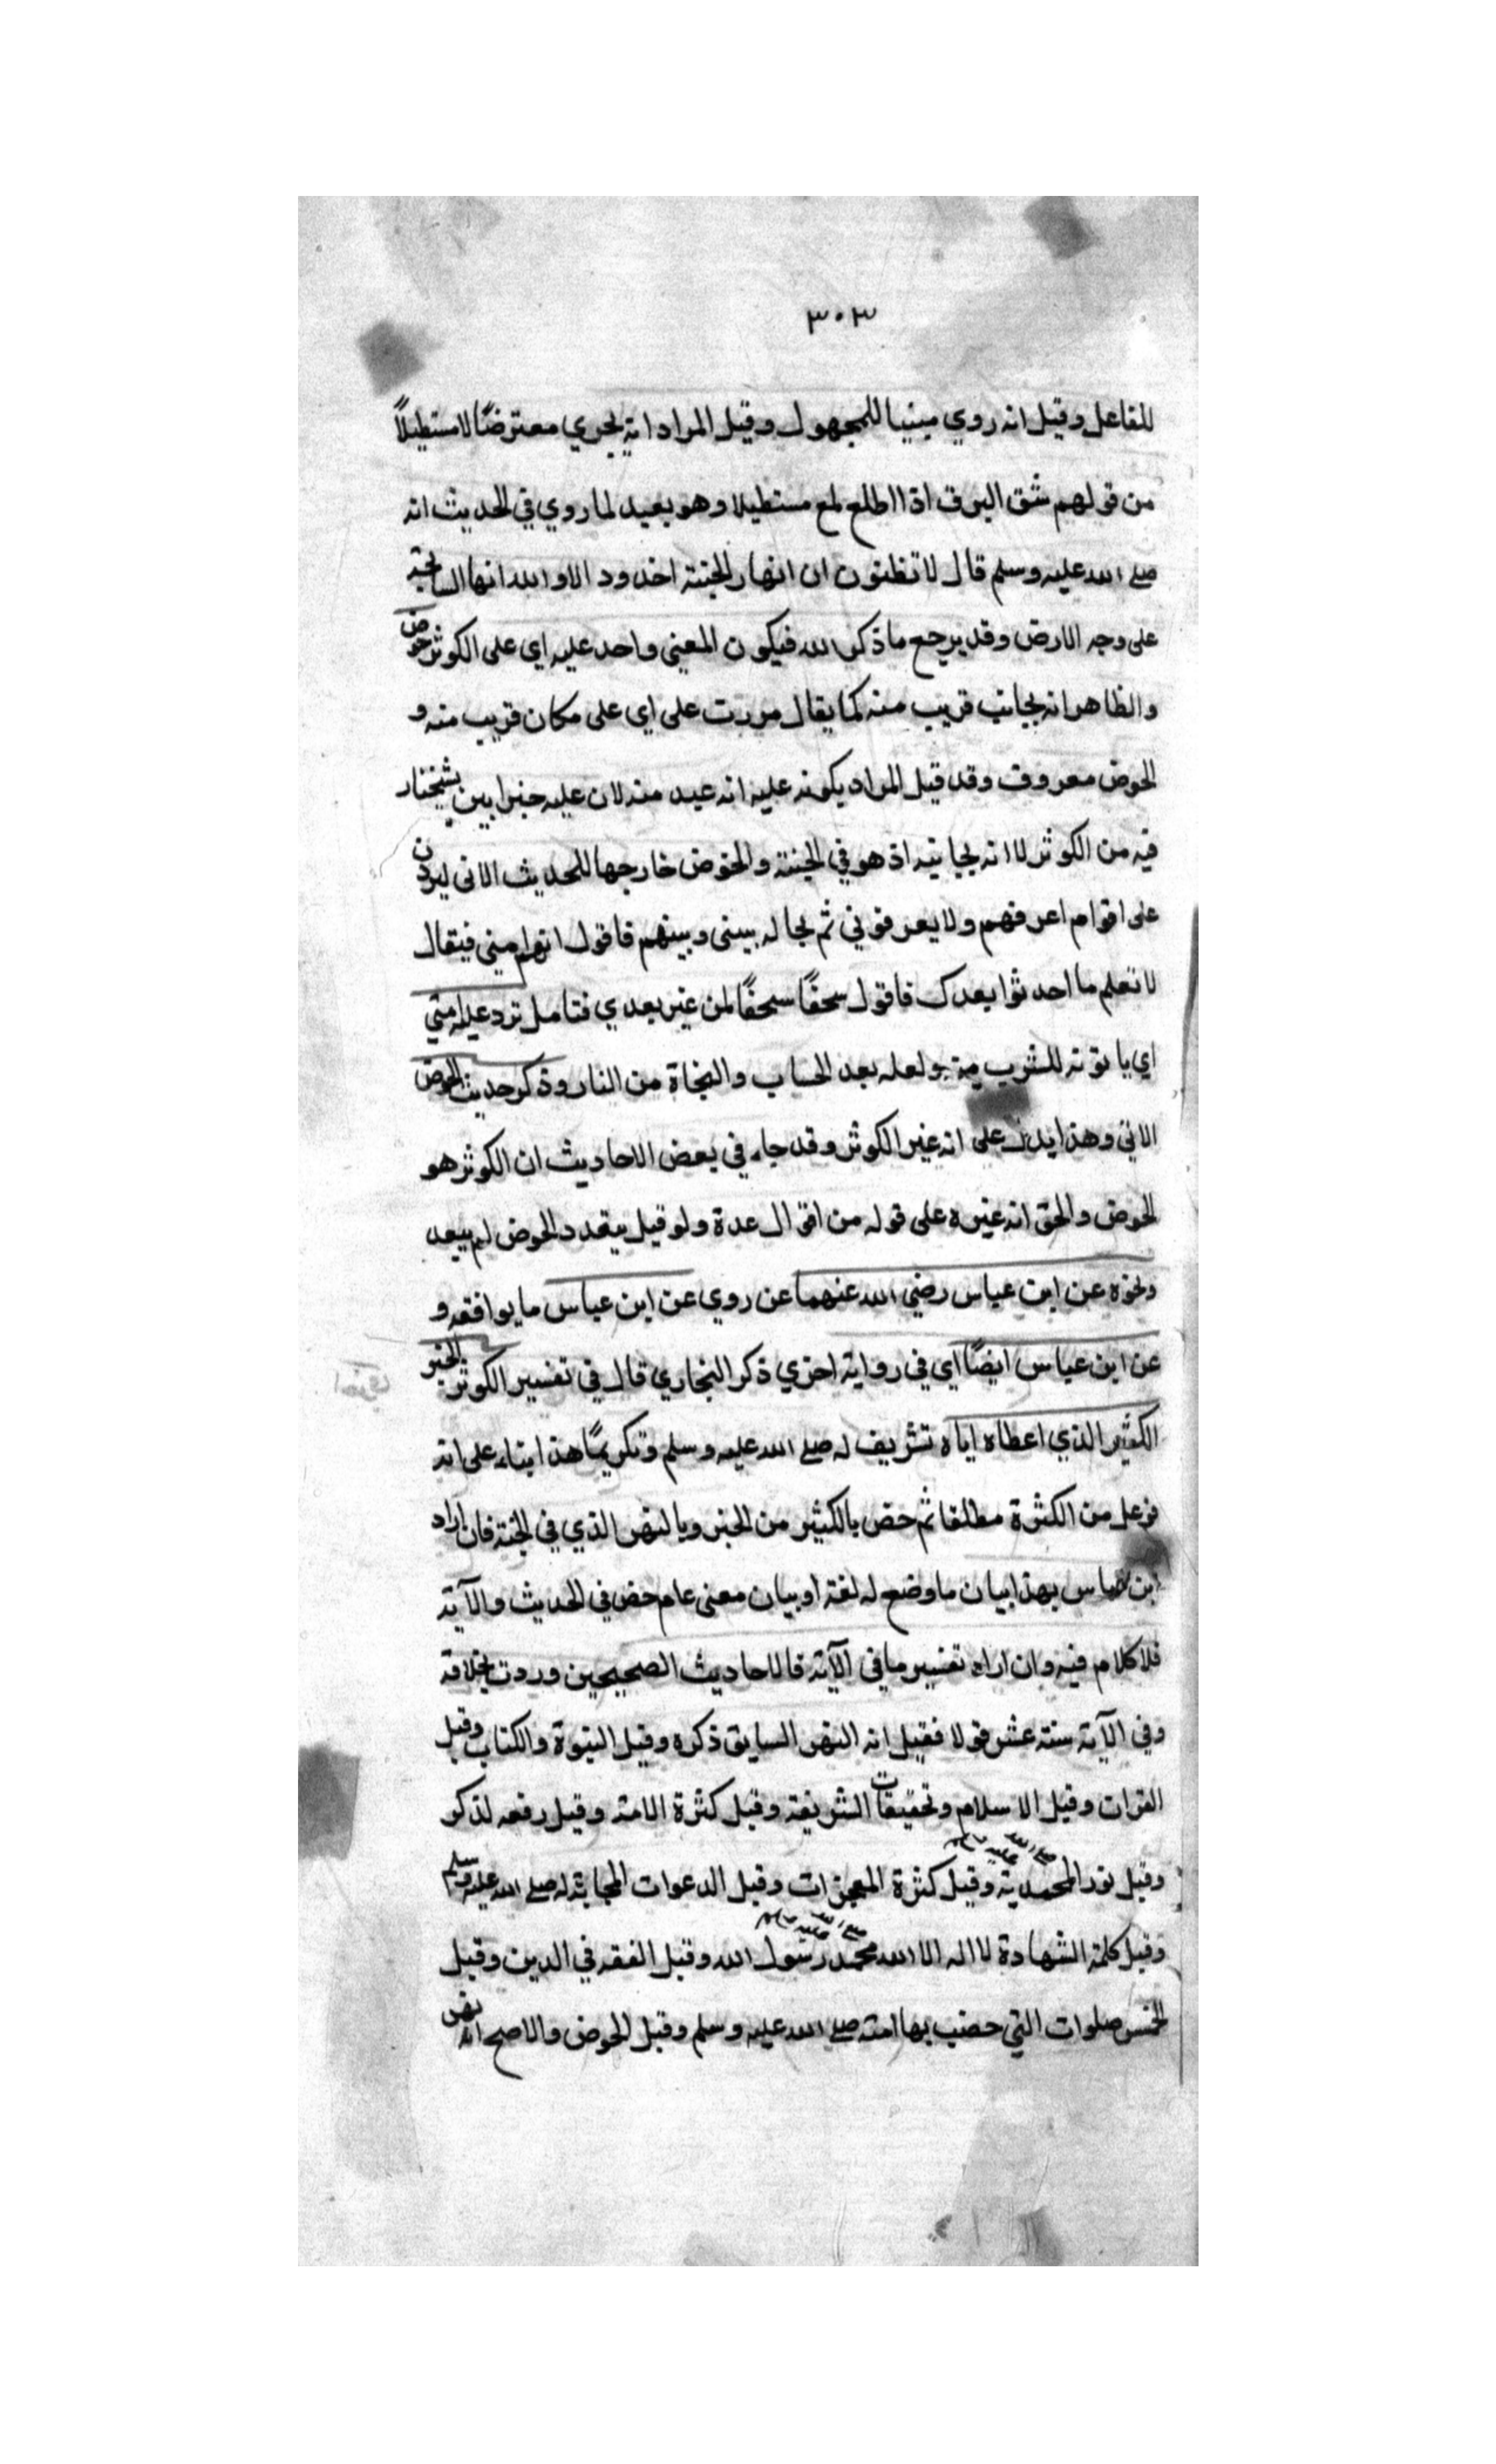 ٣٠٣
للفاعل وقيل انه روي مبنيا للمجهول وقيل المراد انه يجري معترضًا لا مستطيلاً
من قولهم شق البرق اذا اطلع لمع مستطيلا وهو بعيد لما روي في الحديث انه
صلى الله عليه وسلم قال لا تظنون ان انهار الجنة اخدود الا والله انها السايحة
على وجه الارض وقد يرجع ما ذكر الله فيكون المعنى واحد عليه اي على الكوثر حوض
والظاهر انه بجانب قريب منه كما يقال مررت على اي على مكان قريب منه و
الحوض معروف وقد قيل المراد بكونه عليه انه عيد منه لان عليه
فيه من الكوثر لا انه بجانبه اذ هو في الجنة والحوض خارجها للحديث الاتي ليردن
على اقوام اعرفهم ولا يعرفوني ثم يحال بيني وبينهم فاقول انهم مني فيقال
لا تعلم ما احدثوا بعدك فاقول سحقًا سحقًا لمن غير بعدي فتامل ترد عليه امتي
اي ياتونه للشرب منه ولعله بعد الحساب والنجاة من النار وذكر حديث الحوض
الاتي وهذا يدل على انه غير الكوثر وقد جاء في بعض الاحاديث ان الكوثر هو
الحوض والحق انه غيره على قوله من اقوال عدة ولو قيل بتعدد الحوض لم يبعد
ونحوه عن ابن عباس رضي الله عنهما عن روي عن ابن عباس ما يوافقه و
عن ابن عباس ايضًا اي في رواية اخري ذكر البخاري قال في تفسير الكوثر الخير
الكثير الذي اعطاه اياه تشريف له صلى الله عليه وسلم وتكريمًا هذا بناء على انه
فوعل من الكثرة مطلقا ثم خص بالكثير من الخير وبالنهر الذي في الجنة فان اراد
ابن عباس بهذا بيان ما وضع له لغة او بيان معنى عام خص في الحديث والآية
فلا كلام فيه وان اراد تفسير ما في الآية فالاحاديث الصحيحين وردت بخلافه
وفي الآية ستة عشر قولا فقيل انه النهر السابق ذكره وقيل النبوة والكتاب وقيل
القران وقيل الاسلام وتحقيقات الشريعة وقيل كثرة الامة وقيل رفعه لذكر
وقيل نور المحمدية صلى الله عليه وسلم وقيل كثرة المعجزات وقيل الدعوات المجابة له صلى الله عليه وسلم
وقيل كلمة الشهادة لا اله الا الله محمد رسول الله صلى الله عليه وسلم وقيل الفقه في الدين وقيل
الخمس صلوات التي خصت بها امته صلى الله عليه وسلم وقيل الحوض والاصح انه نهر